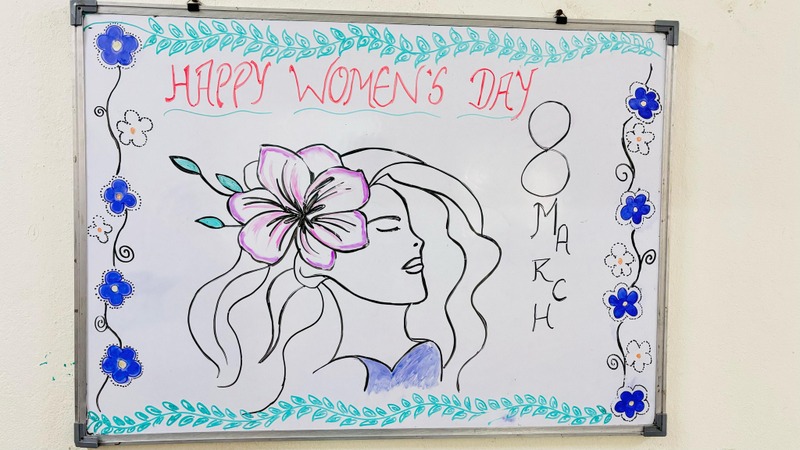 HAPPY WOMEN'S DAY
8
MARCH